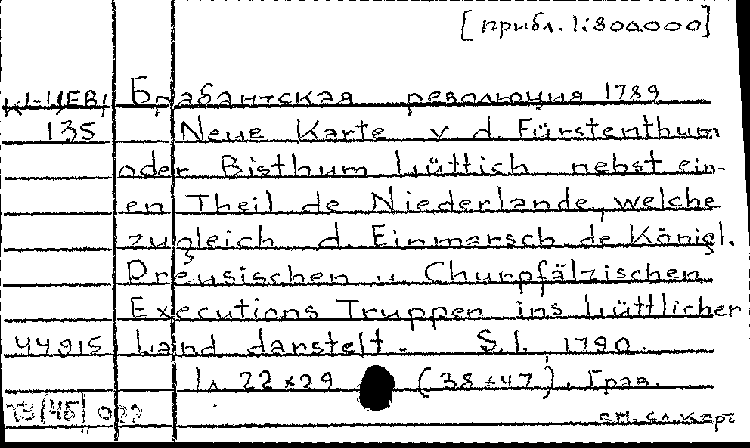 [прибл. 1:800.000]
Брабантская революция 1789
135 Neue Karte v d. Fürstenthum
oder Bisthum Lüttich nebst ein-
en Theil de Niederlande, welche
zugleich d. Einmarsch de Königl.
Preusischen u. Churpfälzischen
Executions Truppen ins Lüttlicher
44915 Land darstelt. S.l., 1790.
1л 22×29 (38×47). Грав.
см. сл. карт